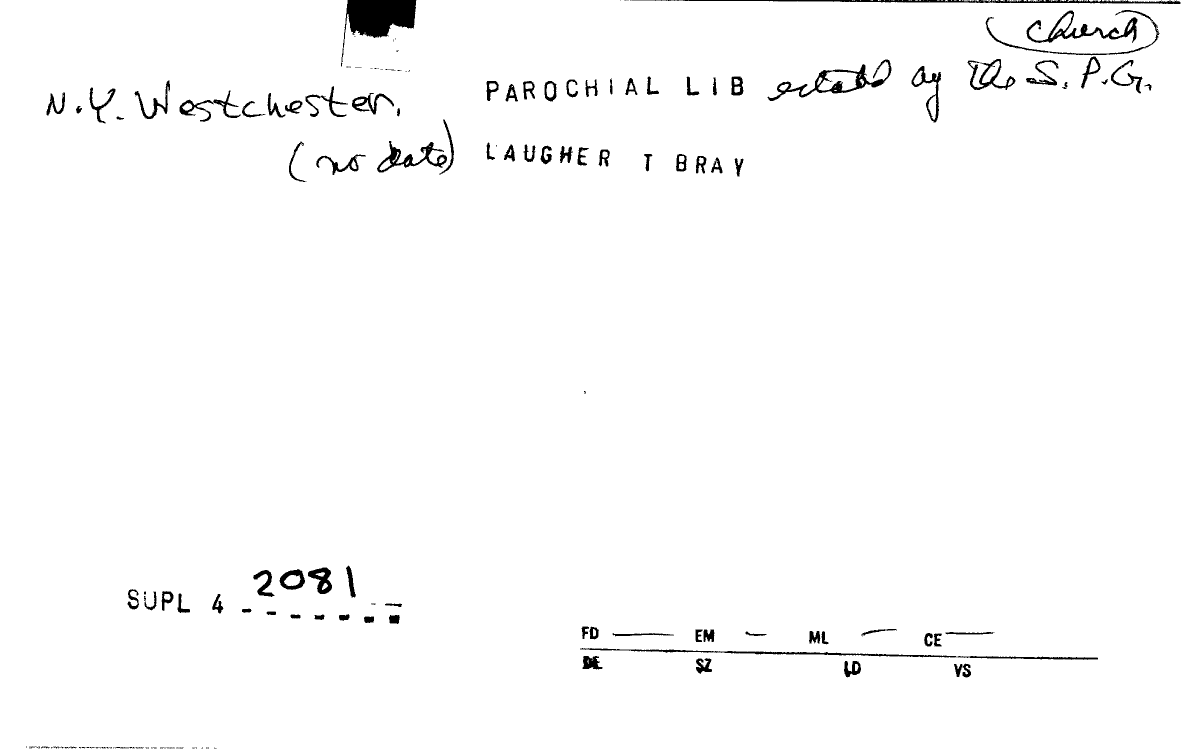 church
N.Y. Westchester. PAROCHIAL LIB estabd by the S.P.G.
(no date) LAUGHER T BRAY
SUPL 4 2081
FD EM ML CE
DE SZ LD VS